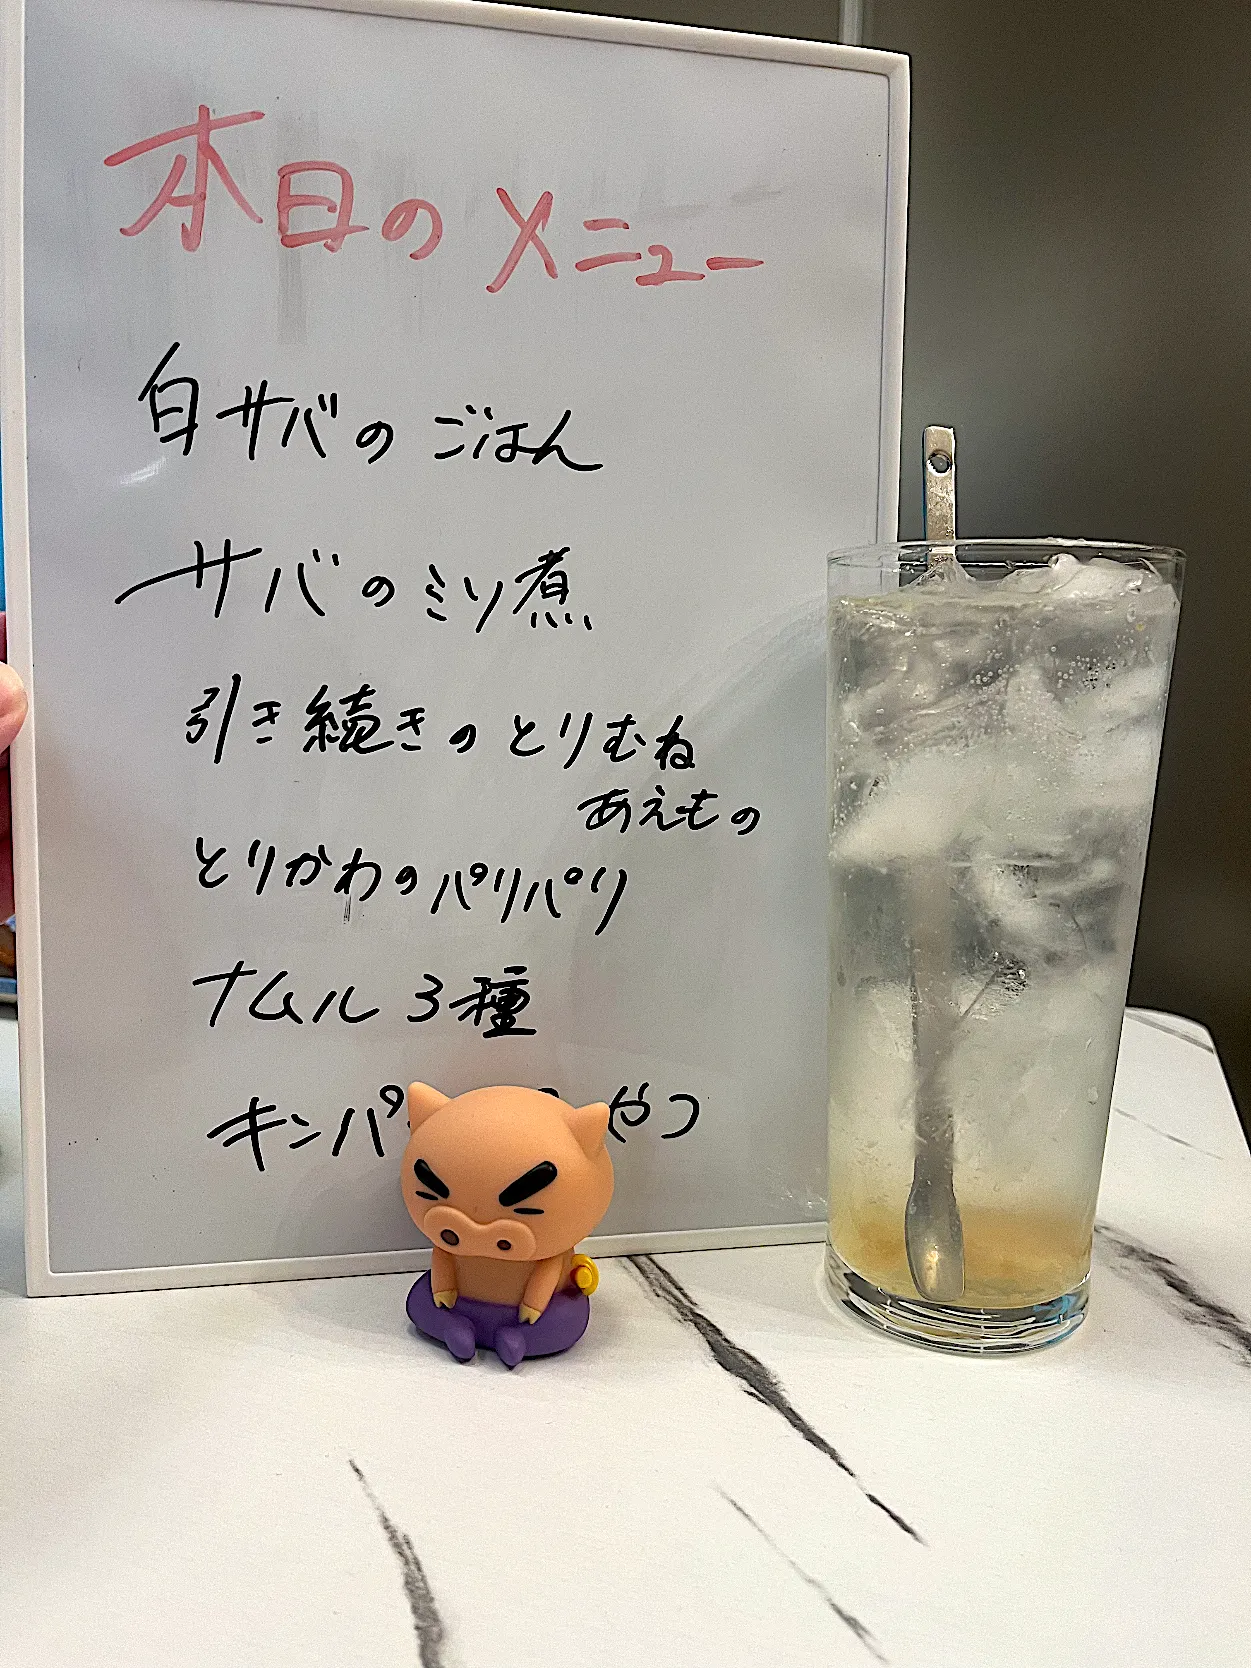 本日のメニュー
白サバのごはん
サバのミソ煮
引き続きのとりむね
あえもの
とりかわのパリパリ
ナムル3種
キンパ やつ